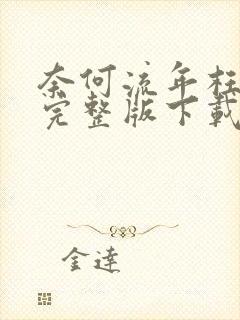 奈何流年枉
完整版下载
金達